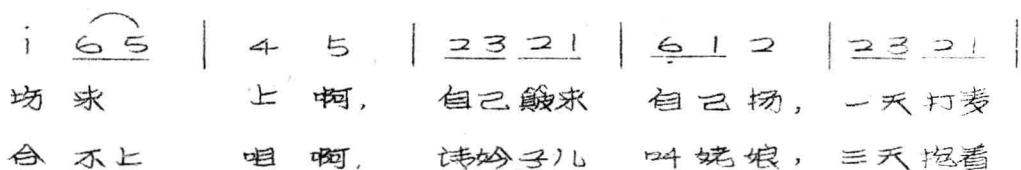 i 6 5 | 4 5 | 2 3 2 1 | 6 1 2 | 2 3 2 1 |
场 求 上 啊, 自己 求 自己 扬, 一天 打麦
合 不上 咀 啊, 子儿 叫 姥娘, 三天 抱着